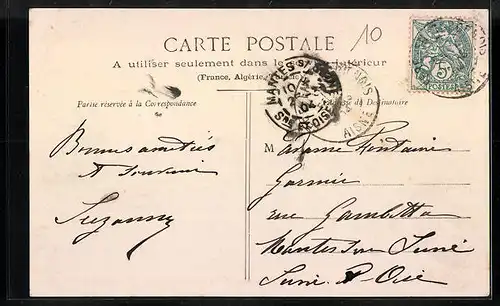 10
CARTE POSTALE
A utiliser seulement dans le intérieur
(France, Algérie,
Partie réservée à la Correspondance
Adresse du Destinataire
MANTES S/ SEINE
10
04
SNE ET OISE
AISNE
5
POSTES
Bonnes amitiés
et souvenir
Suzanne
Madame Fontaine
rue Gambetta
Mantes sur Seine
Seine & Oise